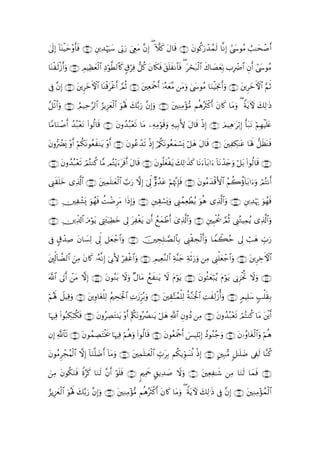 أَصْحَٰبُ مُوسَىٰٓ إِنَّا لَمُدْرَكُونَ ۝ قَالَ كَلَّآ ۖ إِنَّ مَعِىَ رَبِّى سَيَهْدِينِ ۝ فَأَوْحَيْنَآ إِلَىٰ
مُوسَىٰٓ أَنِ ٱضْرِب بِّعَصَاكَ ٱلْبَحْرَ ۖ فَٱنفَلَقَ فَكَانَ كُلُّ فِرْقٍ كَٱلطَّوْدِ ٱلْعَظِيمِ ۝ وَأَزْلَفْنَا
ثَمَّ ٱلْءَاخَرِينَ ۝ وَأَنجَيْنَا مُوسَىٰ وَمَن مَّعَهُۥٓ أَجْمَعِينَ ۝ ثُمَّ أَغْرَقْنَا ٱلْءَاخَرِينَ ۝ إِنَّ فِى
ذَٰلِكَ لَءَايَةً ۖ وَمَا كَانَ أَكْثَرُهُم مُّؤْمِنِينَ ۝ وَإِنَّ رَبَّكَ لَهُوَ ٱلْعَزِيزُ ٱلرَّحِيمُ ۝ وَٱتْلُ
عَلَيْهِمْ نَبَأَ إِبْرَٰهِيمَ ۝ إِذْ قَالَ لِأَبِيهِ وَقَوْمِهِۦ مَا تَعْبُدُونَ ۝ قَالُوا۟ نَعْبُدُ أَصْنَامًا
فَنَظَلُّ لَهَا عَٰكِفِينَ ۝ قَالَ هَلْ يَسْمَعُونَكُمْ إِذْ تَدْعُونَ ۝ أَوْ يَنفَعُونَكُمْ أَوْ يَضُرُّونَ ۝
قَالُوا۟ بَلْ وَجَدْنَآ ءَابَآءَنَا كَذَٰلِكَ يَفْعَلُونَ ۝ قَالَ أَفَرَءَيْتُم مَّا كُنتُمْ تَعْبُدُونَ ۝
أَنتُمْ وَءَابَآؤُكُمُ ٱلْأَقْدَمُونَ ۝ فَإِنَّهُمْ عَدُوٌّ لِّىٓ إِلَّا رَبَّ ٱلْعَٰلَمِينَ ۝ ٱلَّذِى خَلَقَنِى
فَهُوَ يَهْدِينِ ۝ وَٱلَّذِى هُوَ يُطْعِمُنِى وَيَسْقِينِ ۝ وَإِذَا مَرِضْتُ فَهُوَ يَشْفِينِ ۝
وَٱلَّذِى يُمِيتُنِى ثُمَّ يُحْيِينِ ۝ وَٱلَّذِىٓ أَطْمَعُ أَن يَغْفِرَ لِى خَطِيٓـَٔتِى يَوْمَ ٱلدِّينِ ۝
رَبِّ هَبْ لِى حُكْمًا وَأَلْحِقْنِى بِٱلصَّٰلِحِينَ ۝ وَٱجْعَل لِّى لِسَانَ صِدْقٍ فِى
ٱلْءَاخِرِينَ ۝ وَٱجْعَلْنِى مِن وَرَثَةِ جَنَّةِ ٱلنَّعِيمِ ۝ وَٱغْفِرْ لِأَبِىٓ إِنَّهُۥ كَانَ مِنَ ٱلضَّآلِّينَ
۝ وَلَا تُخْزِنِى يَوْمَ يُبْعَثُونَ ۝ يَوْمَ لَا يَنفَعُ مَالٌ وَلَا بَنُونَ ۝ إِلَّا مَنْ أَتَى ٱللَّهَ
بِقَلْبٍ سَلِيمٍ ۝ وَأُزْلِفَتِ ٱلْجَنَّةُ لِلْمُتَّقِينَ ۝ وَبُرِّزَتِ ٱلْجَحِيمُ لِلْغَاوِينَ ۝ وَقِيلَ لَهُمْ
أَيْنَ مَا كُنتُمْ تَعْبُدُونَ ۝ مِن دُونِ ٱللَّهِ هَلْ يَنصُرُونَكُمْ أَوْ يَنتَصِرُونَ ۝ فَكُبْكِبُوا۟ فِيهَا
هُمْ وَٱلْغَاوُۥنَ ۝ وَجُنُودُ إِبْلِيسَ أَجْمَعُونَ ۝ قَالُوا۟ وَهُمْ فِيهَا يَخْتَصِمُونَ ۝ تَٱللَّهِ إِن
كُنَّا لَفِى ضَلَٰلٍ مُّبِينٍ ۝ إِذْ نُسَوِّيكُم بِرَبِّ ٱلْعَٰلَمِينَ ۝ وَمَآ أَضَلَّنَآ إِلَّا ٱلْمُجْرِمُونَ ۝
فَمَا لَنَا مِن شَٰفِعِينَ ۝ وَلَا صَدِيقٍ حَمِيمٍ ۝ فَلَوْ أَنَّ لَنَا كَرَّةً فَنَكُونَ مِنَ
ٱلْمُؤْمِنِينَ ۝ إِنَّ فِى ذَٰلِكَ لَءَايَةً ۖ وَمَا كَانَ أَكْثَرُهُم مُّؤْمِنِينَ ۝ وَإِنَّ رَبَّكَ لَهُوَ ٱلْعَزِيزُ